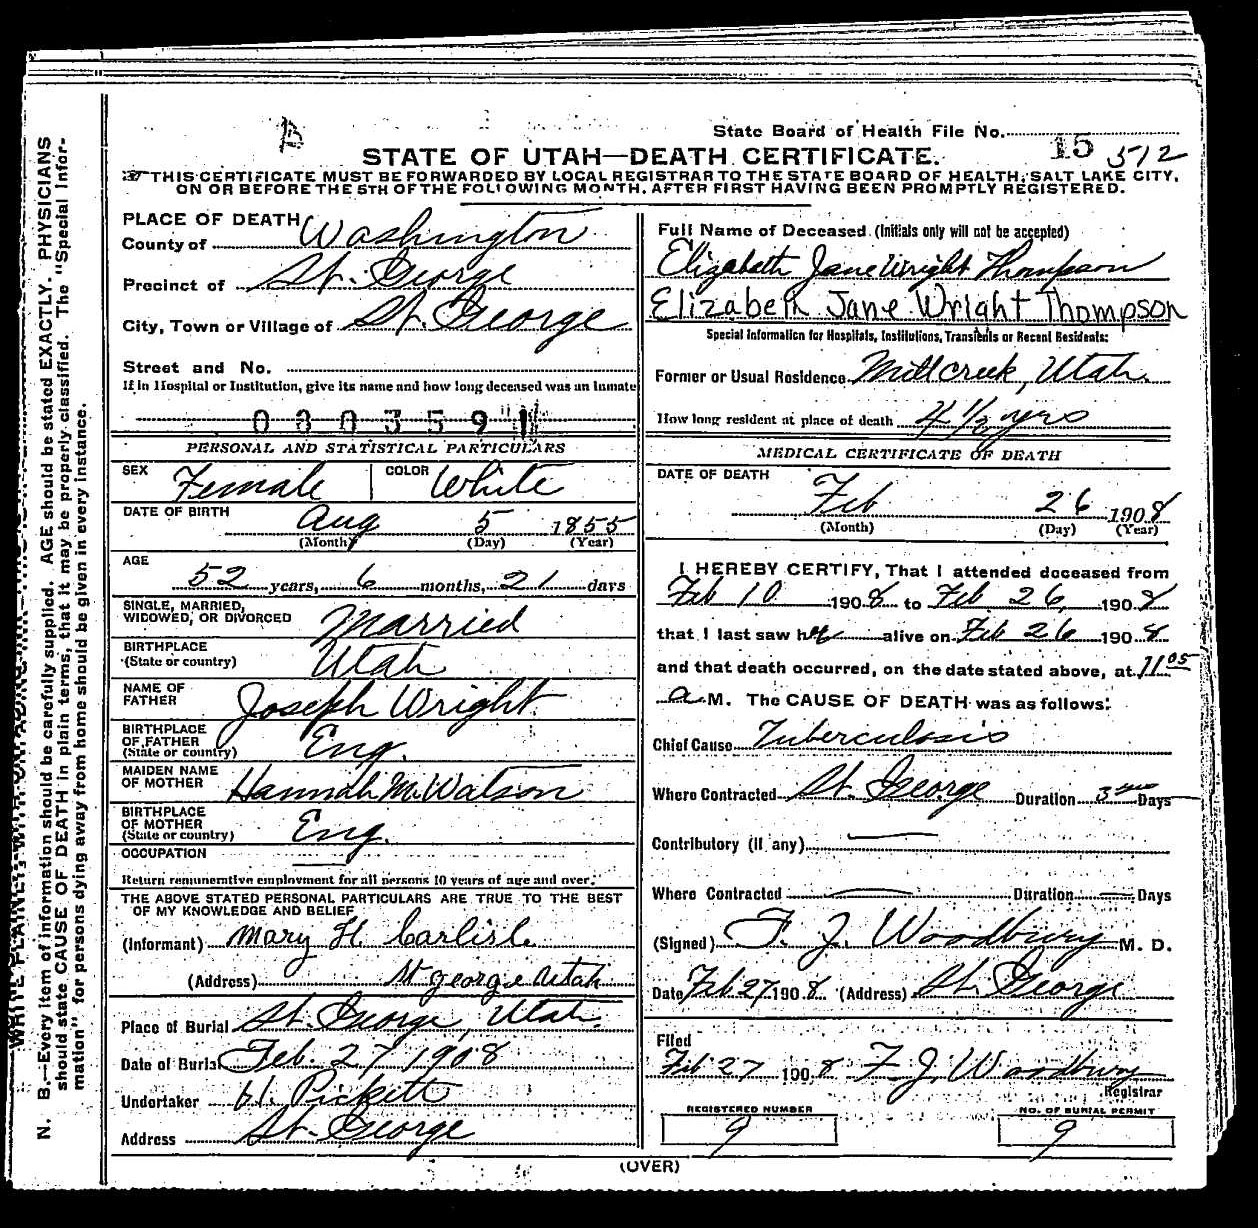 B
State Board of Health File No. 15 512
STATE OF UTAH—DEATH CERTIFICATE.
THIS CERTIFICATE MUST BE FORWARDED BY LOCAL REGISTRAR TO THE STATE BOARD OF HEALTH, SALT LAKE CITY,
ON OR BEFORE THE 5TH OF THE FOLLOWING MONTH, AFTER FIRST HAVING BEEN PROMPTLY REGISTERED.
PLACE OF DEATH
County of Washington
Precinct of St. George
City, Town or Village of St. George
Street and No.
If in Hospital or Institution, give its name and how long deceased was an inmate
PERSONAL AND STATISTICAL PARTICULARS
SEX Female COLOR White
DATE OF BIRTH Aug 5 1855
(Month) (Day) (Year)
AGE
52 years, 6 months, 21 days
SINGLE, MARRIED,
WIDOWED, OR DIVORCED Married
BIRTHPLACE
(State or country) Utah
NAME OF
FATHER Joseph Wright
BIRTHPLACE
OF FATHER
(State or country) Eng.
MAIDEN NAME
OF MOTHER Hannah M. Watson
BIRTHPLACE
OF MOTHER
(State or country) Eng.
OCCUPATION
Return remunerative employment for all persons 10 years of age and over.
THE ABOVE STATED PERSONAL PARTICULARS ARE TRUE TO THE BEST
OF MY KNOWLEDGE AND BELIEF
(Informant) Mary H Carlisle
(Address) St George Utah
Place of Burial St. George, Utah.
Date of Burial Feb. 27 1908
Undertaker H. Pickett
Address St. George
Full Name of Deceased (Initials only will not be accepted)
Elizabeth Jane Wright Thompson
Elizabeth Jane Wright Thompson
Special Information for Hospitals, Institutions, Transients or Recent Residents:
Former or Usual Residence Mill creek, Utah.
How long resident at place of death 4 1/2 yrs
MEDICAL CERTIFICATE OF DEATH
DATE OF DEATH
Feb 26 1908
(Month) (Day) (Year)
I HEREBY CERTIFY, That I attended deceased from
Feb 10 1908 to Feb. 26, 1908
that I last saw her alive on Feb 26 1908
and that death occurred, on the date stated above, at 11 05
a M. The CAUSE OF DEATH was as follows:
Chief Cause Tuberculosis
Where Contracted St. George Duration 3 Days
Contributory (if any)
Where Contracted Duration Days
(Signed) F. J. Woodbury M. D.
Date Feb 27 1908 (Address) St. George
Filed
Feb 27 1908 F J. Woodbury
Registrar
REGISTERED NUMBER
9
NO. OF BURIAL PERMIT
9
(OVER)
N. B.—Every item of information should be carefully supplied. AGE should be stated EXACTLY. PHYSICIANS
should state CAUSE OF DEATH in plain terms, that it may be properly classified. The "Special Infor-
mation" for persons dying away from home should be given in every instance.